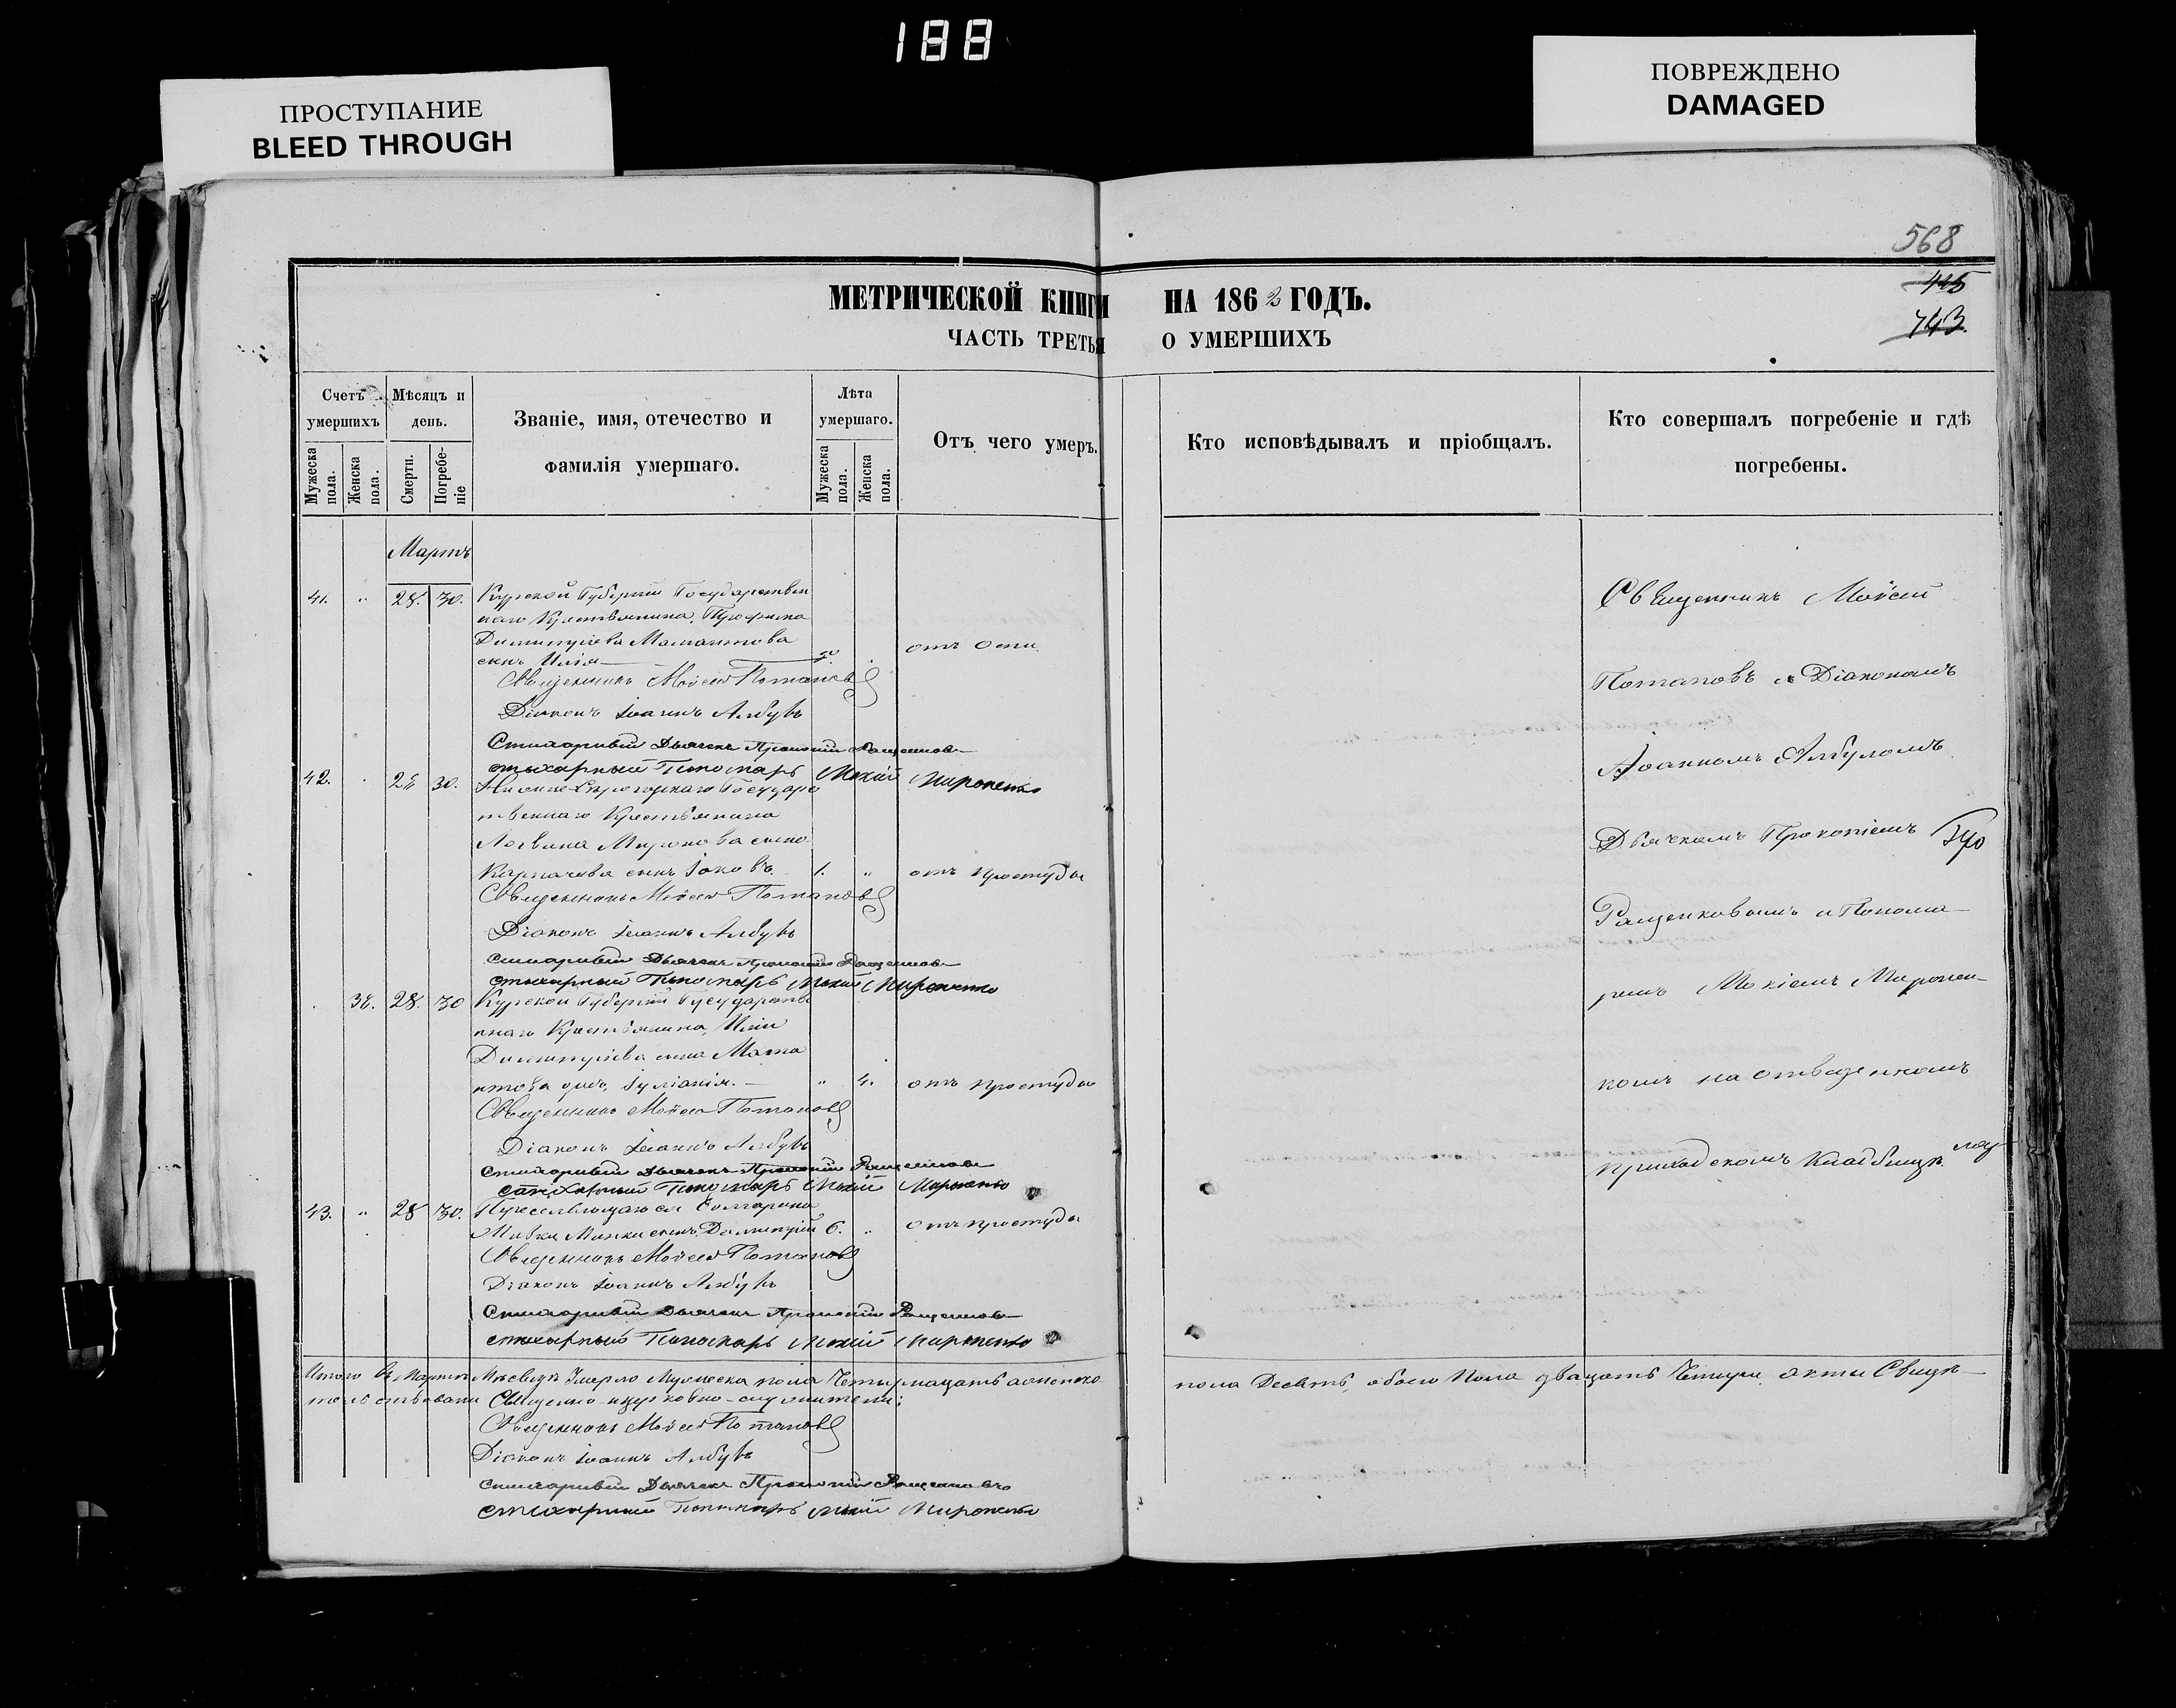 188
ПРОСТУПАНИЕ
BLEED THROUGH
ПОВРЕЖДЕНО
DAMAGED
568
МЕТРИЧЕСКОЙ КНИГИ НА 1862 ГОДЪ.
ЧАСТЬ ТРЕТЬЯ О УМЕРШИХЪ
445
743.
Счетъ умершихъ
Мужеска пола.
Женска пола.
Мѣсяцъ и день.
Смерти.
Погребеніе
Званіе, имя, отечество и фамилія умершаго.
Лѣта умершаго.
Мужеска пола.
Женска пола.
Отъ чего умеръ.
Кто исповѣдывалъ и пріобщалъ.
Кто совершалъ погребеніе и гдѣ погребены.
Мартъ
41. " 28. 30. Курской Губерніи Государствен
наго Крестьянина Трофима
Димитріева Мамантова
сынъ Илія " отъ оспи.
Священникъ Моисей Потаповъ
Діаконъ Іоаннъ Албулъ
Стихарный Дьячекъ Прокопій Ращенковъ
стихарный Пономарь Мокій Мироненко
42. 28 30. Государс
твеннаго Крестьянина
Логвина Миронова сына
Карпачова сынъ Іаковъ. 1. " отъ простуды
Священникъ Моисей Потаповъ
Діаконъ Іоаннъ Албулъ
Стихарный Дьячекъ Прокопій Ращенковъ
стихарный Пономарь Мокій Мироненко
38. 28. 30 Курской Губерніи Государстве
ннаго Крестьянина Иліи
Димитріева сына Мама
нтова дочь Іуліанія. " 4. отъ простуды
Священникъ Моисей Потаповъ
Діаконъ Іоаннъ Албулъ
Стихарный Дьячекъ Прокопій Ращенковъ
стихарный Пономарь Мокій Мироненко
43. " 28 30. Болгарина
сынъ Димитрій 6. " отъ простуды
Священникъ Моисей Потаповъ
Діаконъ Іоаннъ Албулъ
Стихарный Дьячекъ Прокопій Ращенковъ
стихарный Пономарь Мокій Мироненко
Священникъ Моисей
Потаповъ съ Діакономъ
Іоанномъ Албуломъ
Дьячкомъ Прокопіемъ
Ращенковымъ и Понома-
ремъ Мокіемъ Миронен-
комъ на отведенномъ
приходскомъ кладбищѣ
Итого въ Мартѣ Мѣсяцѣ Умерло Мужеска пола Четырнацать а женска пола Десять, обоего пола двацать Четыри. Акти Свидѣ-
тельствовали Священно-церковно-служители:
Священникъ Моисей Потаповъ
Діаконъ Іоаннъ Албулъ
Стихарный Дьячекъ Прокопій Ращенковъ
стихарный Пономарь Мокій Мироненко